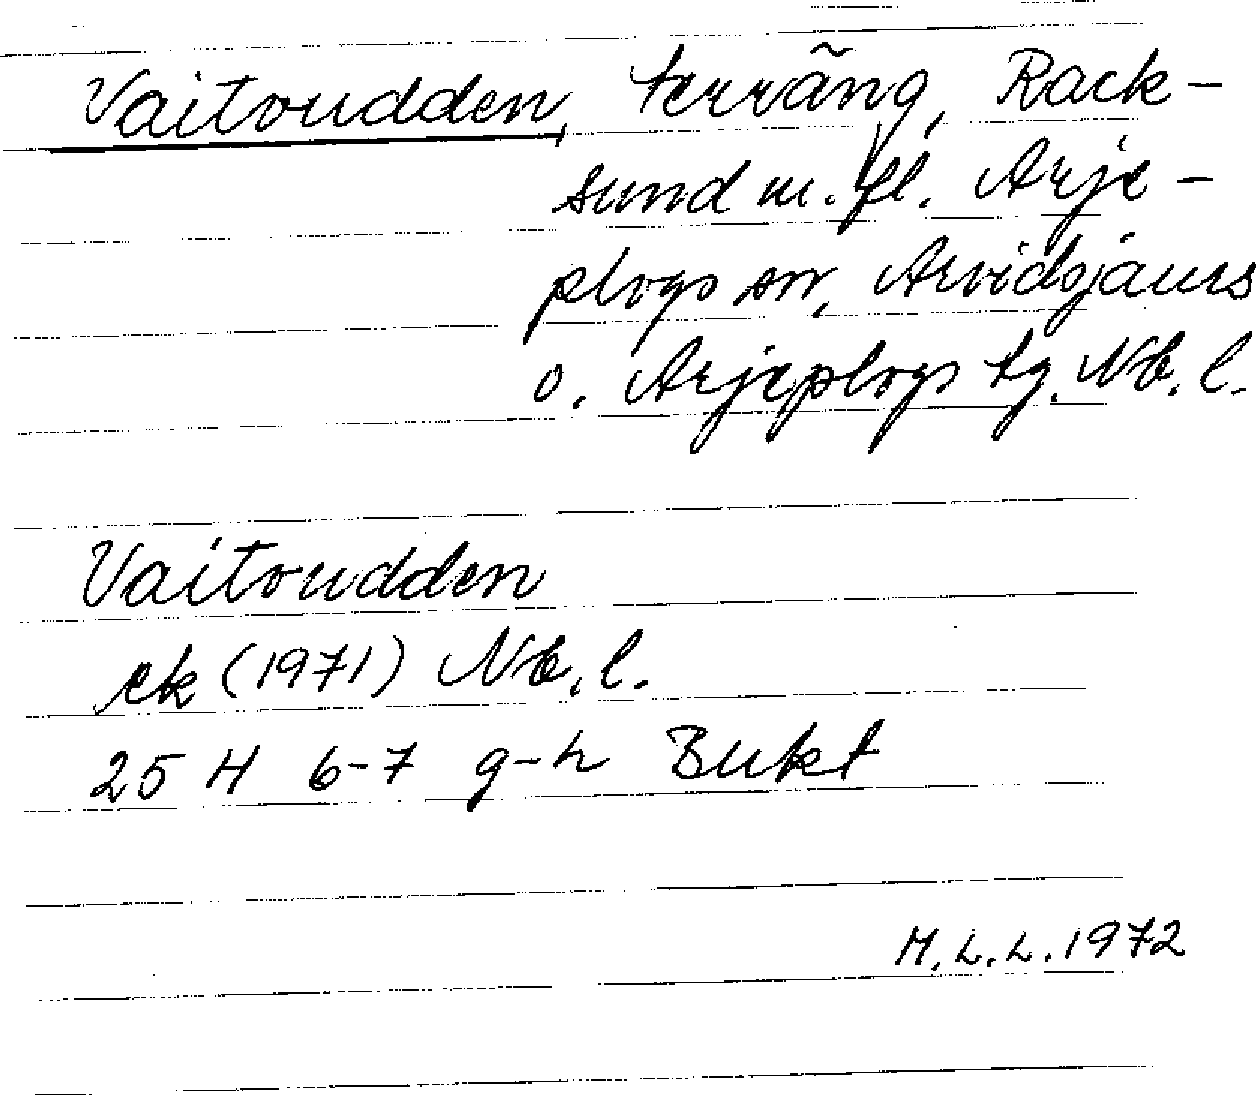 Vaitoudden, terräng, Rack-
sund m. fl. Arje-
plogs sn, Arvidsjaurs
o. Arjeplogs tg. Nb. l.
Vaitoudden
ek (1971) Nb. l.
25 H 6-7 g-h Bukt
M. L. L. 1972